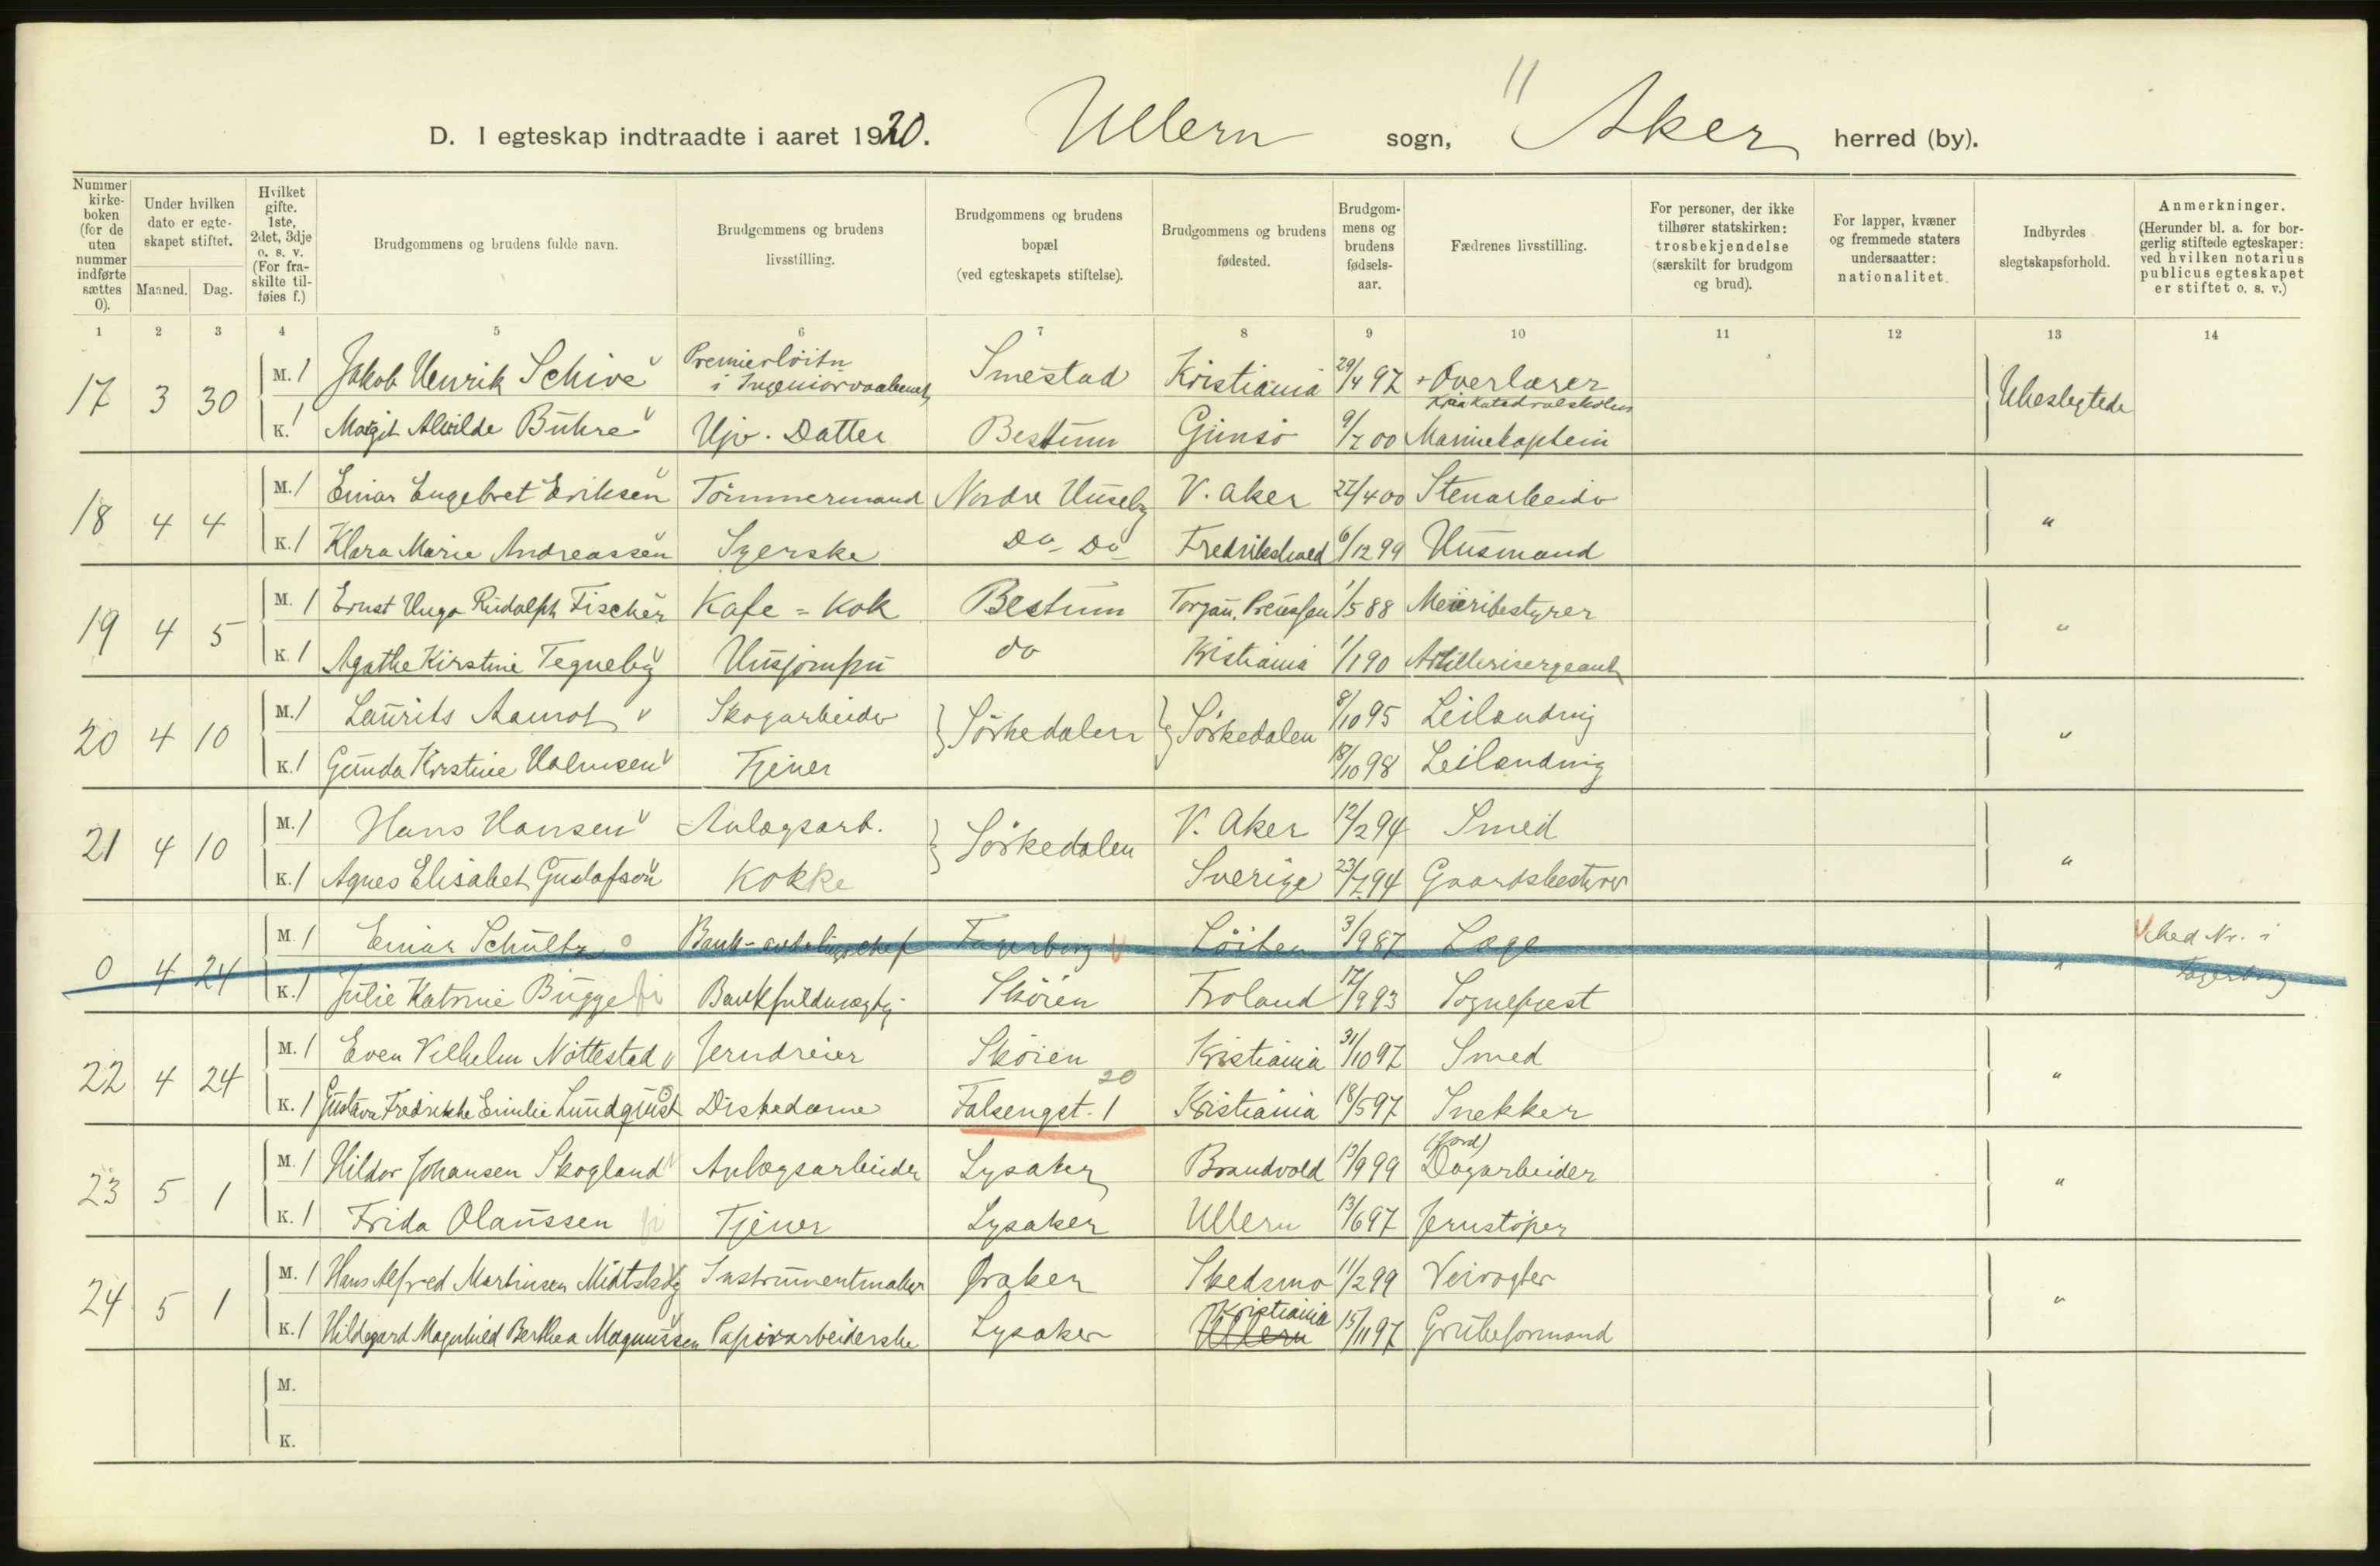 11
D. I egteskap indtraadte i aaret 1920. Ullern sogn, Aker herred (by).
Nummer kirkeboken (for de uten nummer indførte sættes 0).
Under hvilken dato er egteskapet stiftet.
Maaned. Dag.
Hvilket gifte. 1ste, 2det, 3dje o. s. v. (For fraskilte tilføies f.)
Brudgommens og brudens fulde navn.
Brudgommens og brudens livsstilling.
Brudgommens og brudens bopæl (ved egteskapets stiftelse).
Brudgommens og brudens fødested.
Brudgommens og brudens fødselsaar.
Fædrenes livsstilling.
For personer, der ikke tilhører statskirken: trosbekjendelse (særskilt for brudgom og brud).
For lapper, kvæner og fremmede staters undersaatter: nationalitet.
Indbyrdes slegtskapsforhold.
Anmerkninger. (Herunder bl. a. for borgerlig stiftede egteskaper: ved hvilken notarius publicus egteskapet er stiftet o. s. v.)
1 2 3 4 5 6 7 8 9 10 11 12 13 14
17 3 30 M. 1 Jakob Henrik Schive Premierløitn i Ingeniørvaabenet Smestad Kristiania 29/4 97 + Overlærer Kria Katedralskolen Ubeslegtede
K. 1 Margit Alvilde Buhre Ugv. Datter Bestum Gimsø 9/7 00 Marinekaptein
18 4 4 M. 1 Einar Engebret Eriksen Tømmermand Nordre Huseby V. Aker 22/4 00 Stenarbeider "
K. 1 Klara Marie Andreassen Syerske Do Do Fredrikshald 6/12 99 Husmand
19 4 5 M. 1 Ernst Hugo Rudolph Fischer Kafe = Kok Bestum Torgau, Preussen 1/5 88 Meieribestyrer "
K. 1 Agathe Kirstine Tegneby Husjomfru do Kristiania 1/1 90 Artillerisergeant
20 4 10 M. 1 Laurits Aamot Skogarbeider } Sørkedalen } Sørkedalen 8/10 95 Leilænding "
K. 1 Gunda Kirstine Halmsen Tjener 18/10 98 Leilænding
21 4 10 M. 1 Hans Hansen Anlægsarb. } Sørkedalen V. Aker 12/2 94 Smed "
K. 1 Agnes Elisabet Gustafson Kokke Sverige 23/7 94 Gaardsbestyrer
0 4 24 M. 1 Einar Schultz Bank-avdelingschef Fagerborg Løiten 3/9 87 Læge " Med Nr. i Fagerborg
K. 1 Julie Katrine Bugge Bankfuldmægtig Skøien Froland 17/9 93 Sogneprest
22 4 24 M. 1 Even Vilhelm Nøttestad Jerndreier Skøien Kristiania 31/10 97 Smed "
K. 1 Gustava Fredrikke Emilie Lundquist Diskedame Falsengst. 1 20 Kristiania 18/5 97 Snekker
23 5 1 M. 1 Hildor Johansen Skogland Anlægsarbeider Lysaker Brandvold 13/9 99 (Jord) Dagarbeider "
K. 1 Frida Olaussen Tjener Lysaker Ullern 13/6 97 Jernstøper
24 5 1 M. 1 Hans Alfred Martinsen Midtskog Instrumentmaker Øraker Skedsmo 11/2 99 Veivogter "
K. 1 Hildegard Magnhild Berthea Magnussen Papirarbeiderske Lysaker Ullern Kristiania 15/11 97 Grubeformand
M.
K.